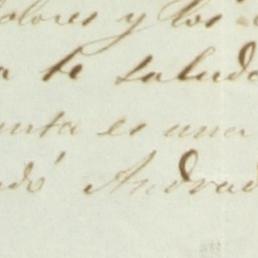 olores y los
a te saluda
unta es una
ndó Andrad